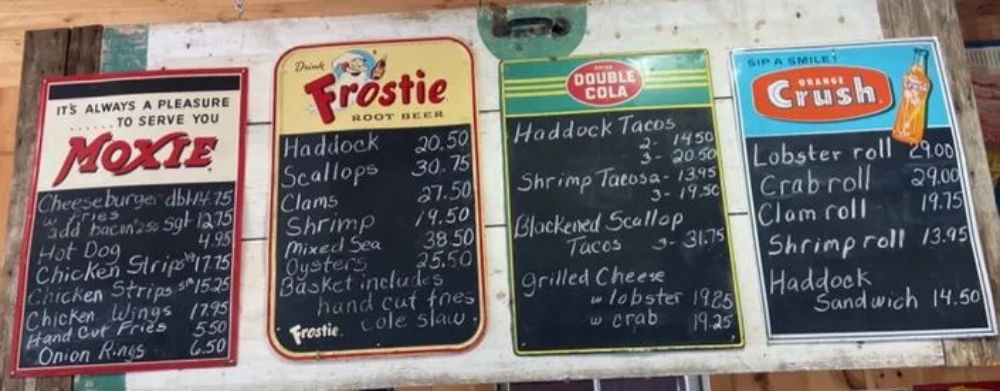 IT'S ALWAYS A PLEASURE
......TO SERVE YOU
MOXIE
Cheeseburger dbl 14.75
w fries
add bacon 2.50 sgl 12.75
Hot Dog 4.95
Chicken Strips lg 17.75
Chicken Strips sm 15.25
Chicken Wings 17.95
Hand Cut Fries 5.50
Onion Rings 6.50
Drink
Frostie
ROOT BEER
Haddock 20.50
Scallops 30.75
Clams 27.50
Shrimp 19.50
Mixed Sea 38.50
Oysters 25.50
Basket includes
hand cut fries
cole slaw.
Frostie
DOUBLE
COLA
Haddock Tacos
2- 14.50
3- 20.50
Shrimp Tacos 2- 13.95
3- 19.50
Blackened Scallop
Tacos 3- 31.75
grilled Cheese
w lobster 19.25
w crab 19.25
SIP A SMILE!
ORANGE
Crush
Lobster roll 29.00
Crab roll 29.00
Clam roll 19.75
Shrimp roll 13.95
Haddock
Sandwich 14.50